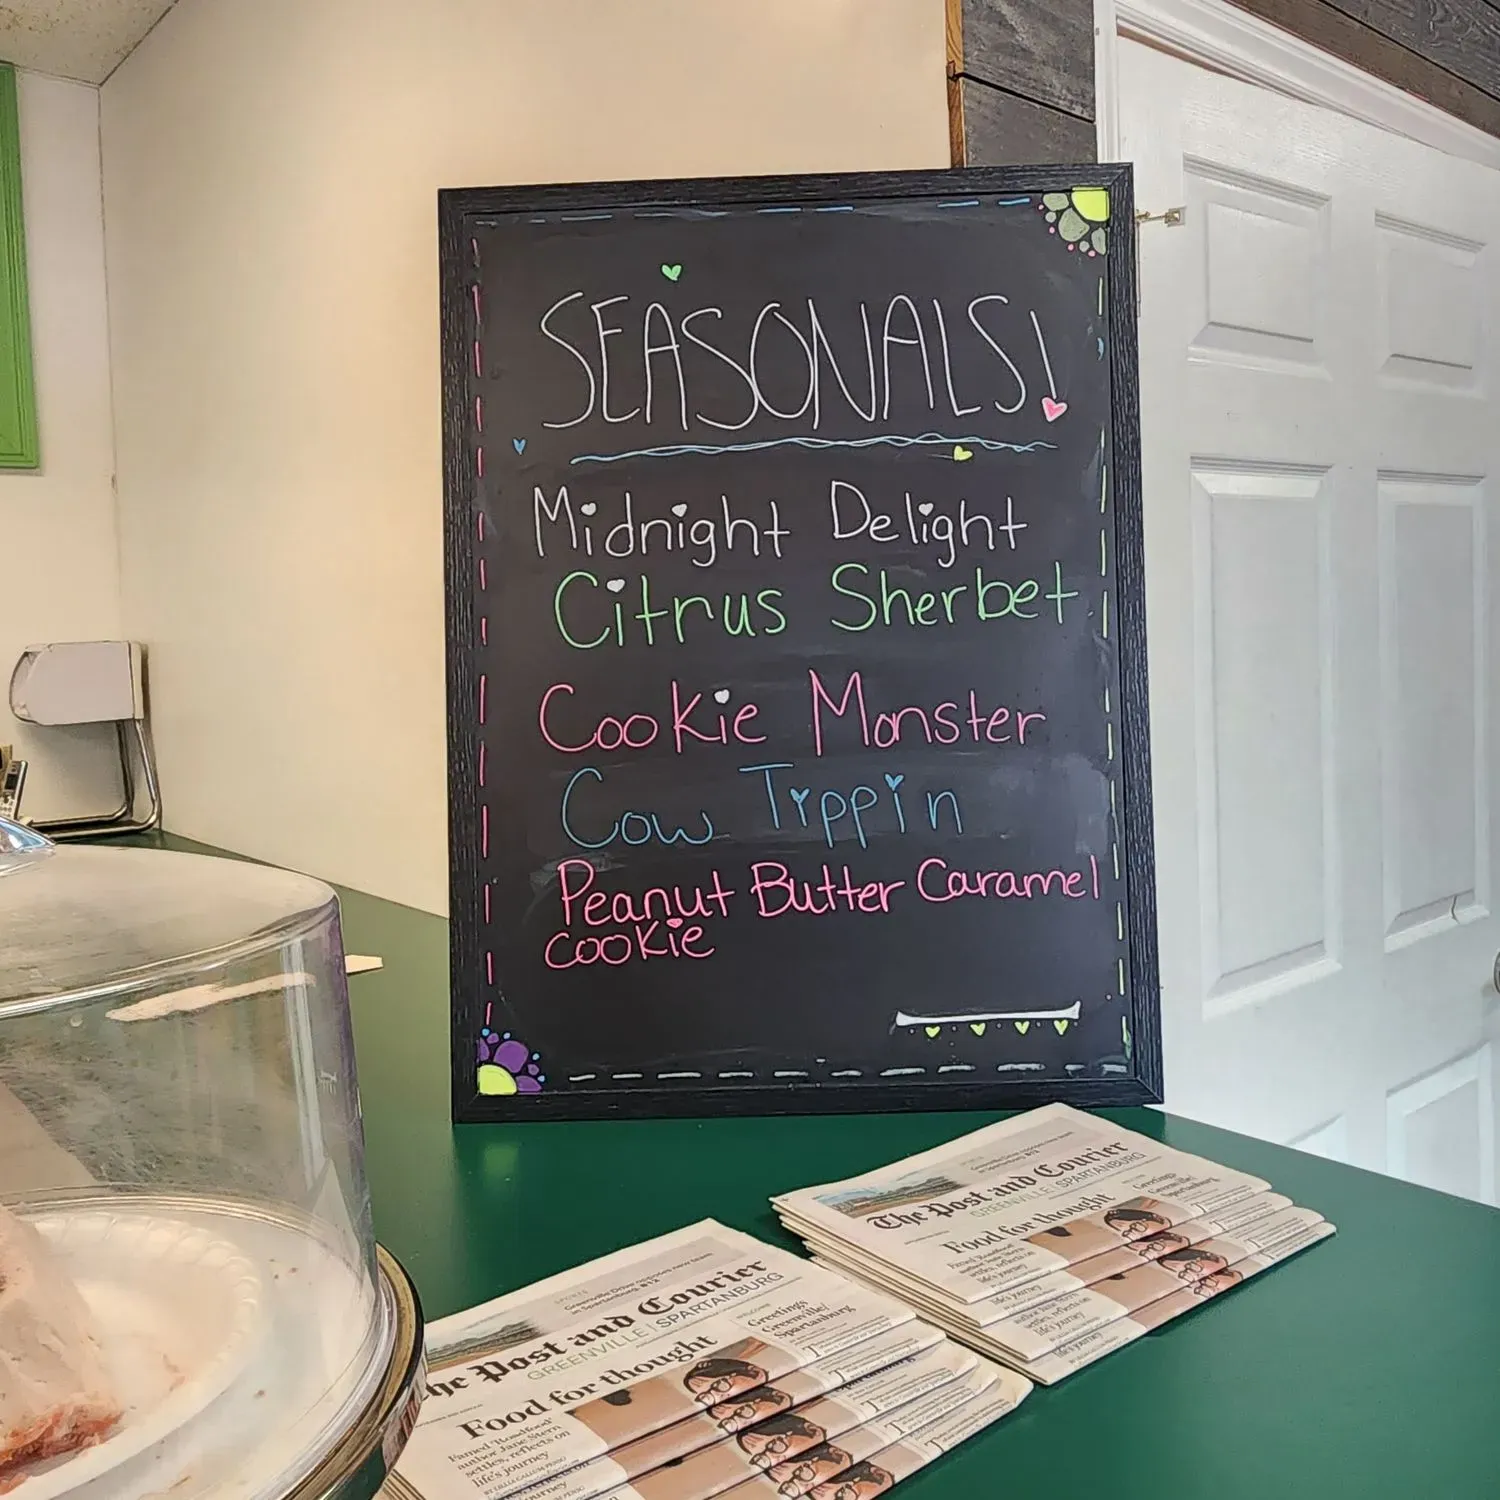 SEASONALS!
Midnight Delight
Citrus Sherbet
Cookie Monster
Cow Tippin
Peanut Butter Caramel
cookie
The Post and Courier
GREENVILLE | SPARTANBURG
Food for thought
Greetings
Greenville/
Spartanburg
Famed 'Roadfood'
author Jane Stern
settles, reflects on
life's journey
Greenville Drive
in Spartanburg B12
The Post and Courier
GREENVILLE | SPARTANBURG
Food for thought
Greetings
Greenville/
Spartanburg
Famed 'Roadfood'
author Jane Stern
settles, reflects on
life's journey
life's journey